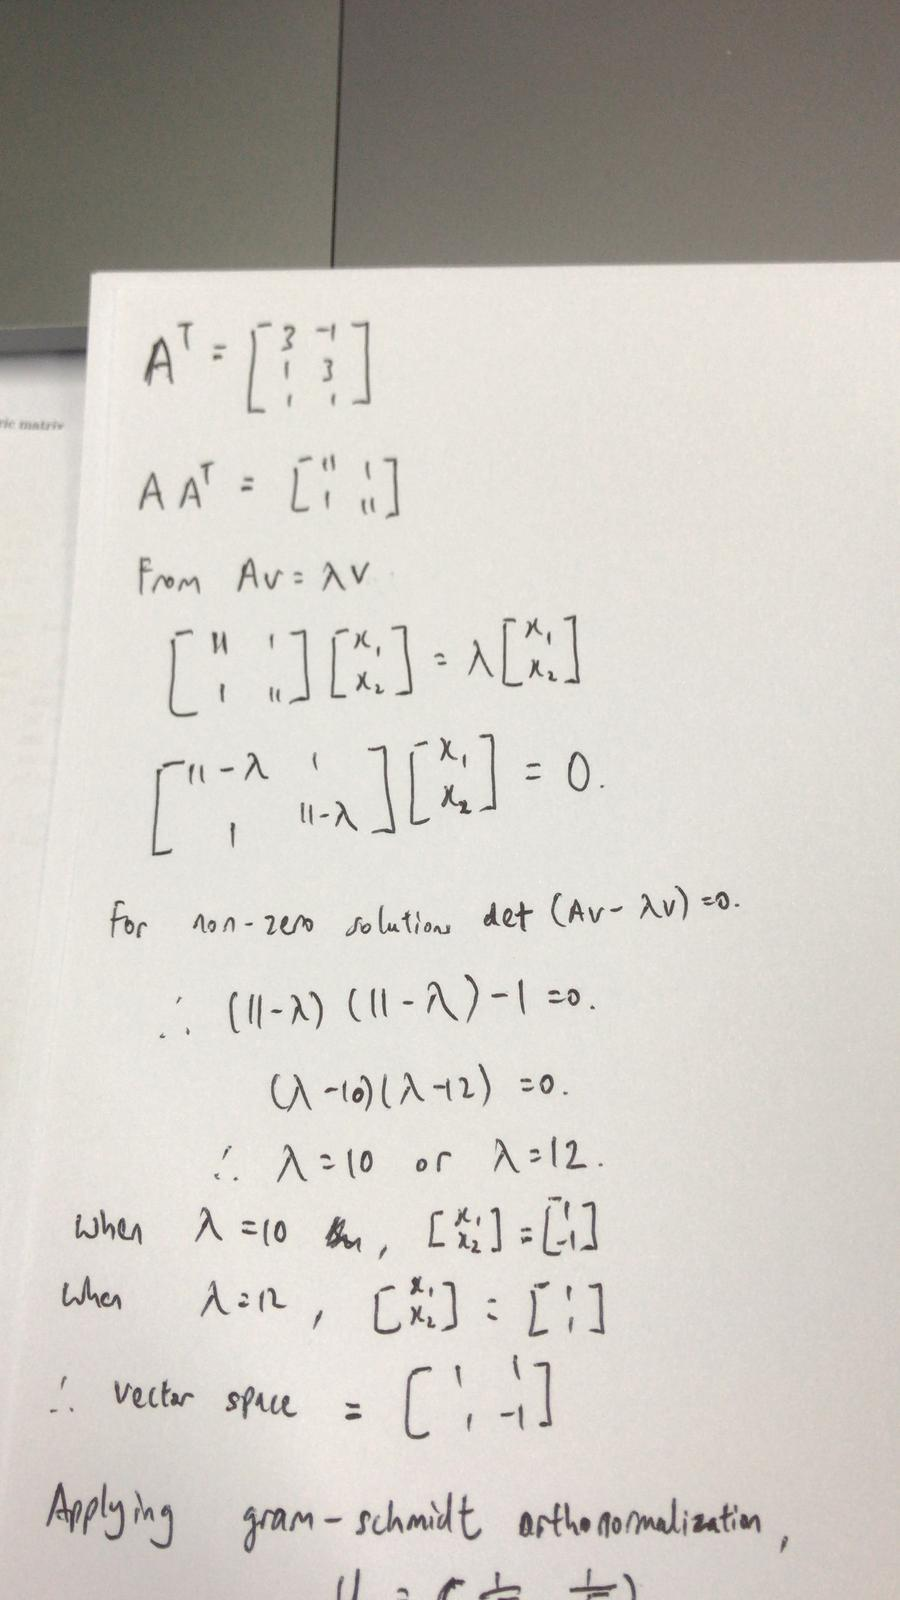 Aᵀ = [3 -1; 1 3; 1 1]
ric matrix
A Aᵀ = [11 1; 1 11]
From Av = λv
[11 1; 1 11] [x₁; x₂] = λ [x₁; x₂]
[11-λ 1; 1 11-λ] [x₁; x₂] = 0.
For non-zero solutions det (Av - λv) = 0.
∴ (11-λ) (11-λ) - 1 = 0.
(λ-10)(λ-12) = 0.
∴ λ = 10 or λ = 12.
when λ = 10 , [x₁; x₂] = [1; -1]
when λ = 12 , [x₁; x₂] = [1; 1]
∴ vector space = [1 1; 1 -1]
Applying gram-schmidt orthonormalization,